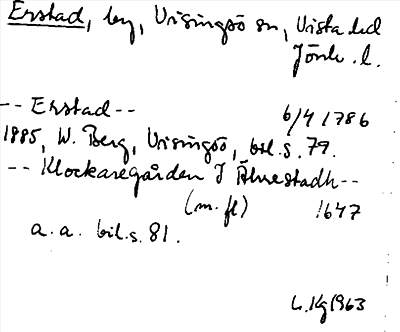 Erstad, by, Visingsö sn, Vista hd
Jönk. l.
-- Erstad -- 6/4 1786
1885, W. Berg, Visingsö, bil.s. 79.
-- Klockaregården I Ährestadh --
(m. fl) 1647
a. a. bil.s. 81.
L. Kg 1963